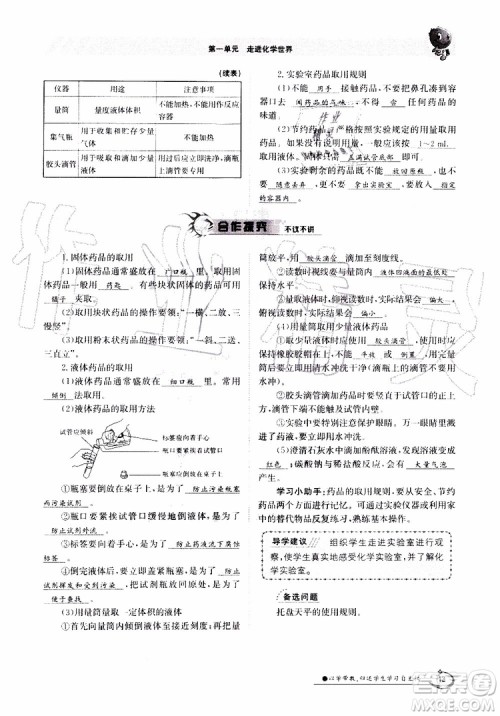 第一单元 走进化学世界
(续表)
仪器 用途 注意事项
量筒 量度液体体积 不能加热,不能用作反应容器
集气瓶 用于收集和贮存少量气体 不能加热
胶头滴管 用于吸取和滴加少量液体 用过后应立即洗净,滴瓶上的滴管除外
2.实验室药品取用规则
(1)不能 用手 接触药品,不要把鼻孔凑到容器口去 闻药品的气味 ,不得 尝 任何药品的味道.
(2)节约药品.严格按照实验规定的用量取用药品.如果没有说明用量,液体一般取 1~2mL,固体只需 盖满试管底部 即可.
(3)实验剩余的药品既不能 放回原瓶 ,也不要 随意丢弃 ,更不要 拿出实验室 .
合作探究 不议不讲
1.固体药品的取用
(1)固体药品通常盛放在 广口瓶 里,取用固体药品一般用 药匙 ,有些块状的药品可用 镊子 夹取.
(2)取用块状药品的操作要领:“一横、二放、三慢竖”.
(3)取用粉末状药品的操作要领:“一斜、二送、三直立”.
2.液体药品的取用
(1)液体药品通常盛放在 细口瓶 里,常用 倾倒 法取用.
(2)液体药品的取用方法
试管应倾斜
标签应向着手心
瓶口要紧挨着试管口
瓶塞应倒放在桌子上
①瓶塞要倒放在桌子上,是为了 防止污染瓶塞,再污染试剂 .
②瓶口要挨紧试管口缓慢地倒液体,是为了 防止试剂外流 .
③标签要向着手心,是为了 防止残液流下腐蚀标签 .
④倒完液体要立即盖紧瓶塞,是为了 防止试剂挥发和污染 ,把试剂瓶放回原处,是为了 便于查找 .
(3)用量筒量取一定体积的液体
①量筒内倾倒液体接近刻度时,将量筒放平,用 胶头滴管 滴加液体至刻度线.
②读数时视线要与 液体凹液面的最低处 保持水平.
③量取液体时,仰视读数,实际结果会 偏大 ,俯视读数,实际结果会 偏小 .
(4)取用少量液体药品时可使用 胶头滴管 .
①取液后的滴管,应保持橡胶胶帽在上,不能 平放 或 倒置 .用过的滴管要立即用清水冲洗干净(滴瓶上的滴管不要用水冲).
②胶头滴管滴液时应垂直于试管口的正上方,滴管下端不能接触试管内壁.
(5)澄清石灰水中滴加酚酞溶液,溶液变为 红色 ;碳酸钠与稀盐酸反应,会有 大量气泡 产生.
学习小助手:药品的取用规则,使用时要注意节约药品的原则.课后可通过实验仪器和简单的替代物品反复练习,熟练基本操作.
导学建议 组织学生走进实验室进行观察,使学生真实地感受化学实验室,并了解化学实验室.
备选问题
托盘天平的使用方法.
以学带教,归还学生学习自主权
12